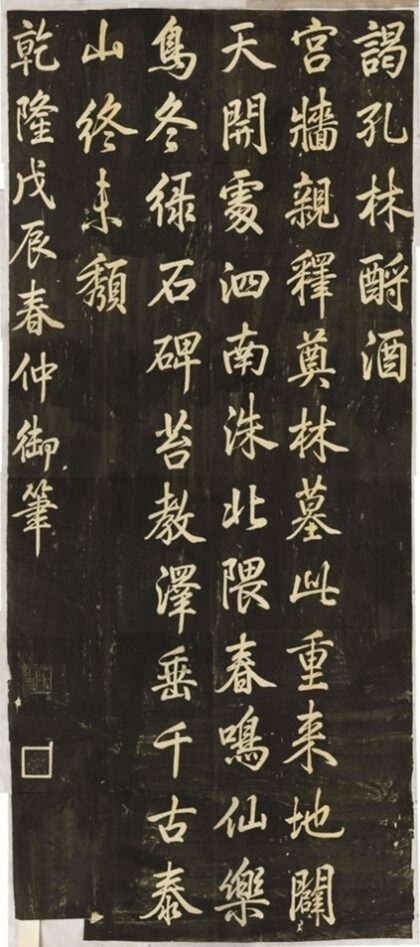 謁孔林酹酒
宮牆親釋奠林墓此重来地闢
天開處泗南洙北隈春鳴仙樂
鳥冬緑石碑苔教澤垂千古泰
山終未頽
乾隆戊辰春仲御筆